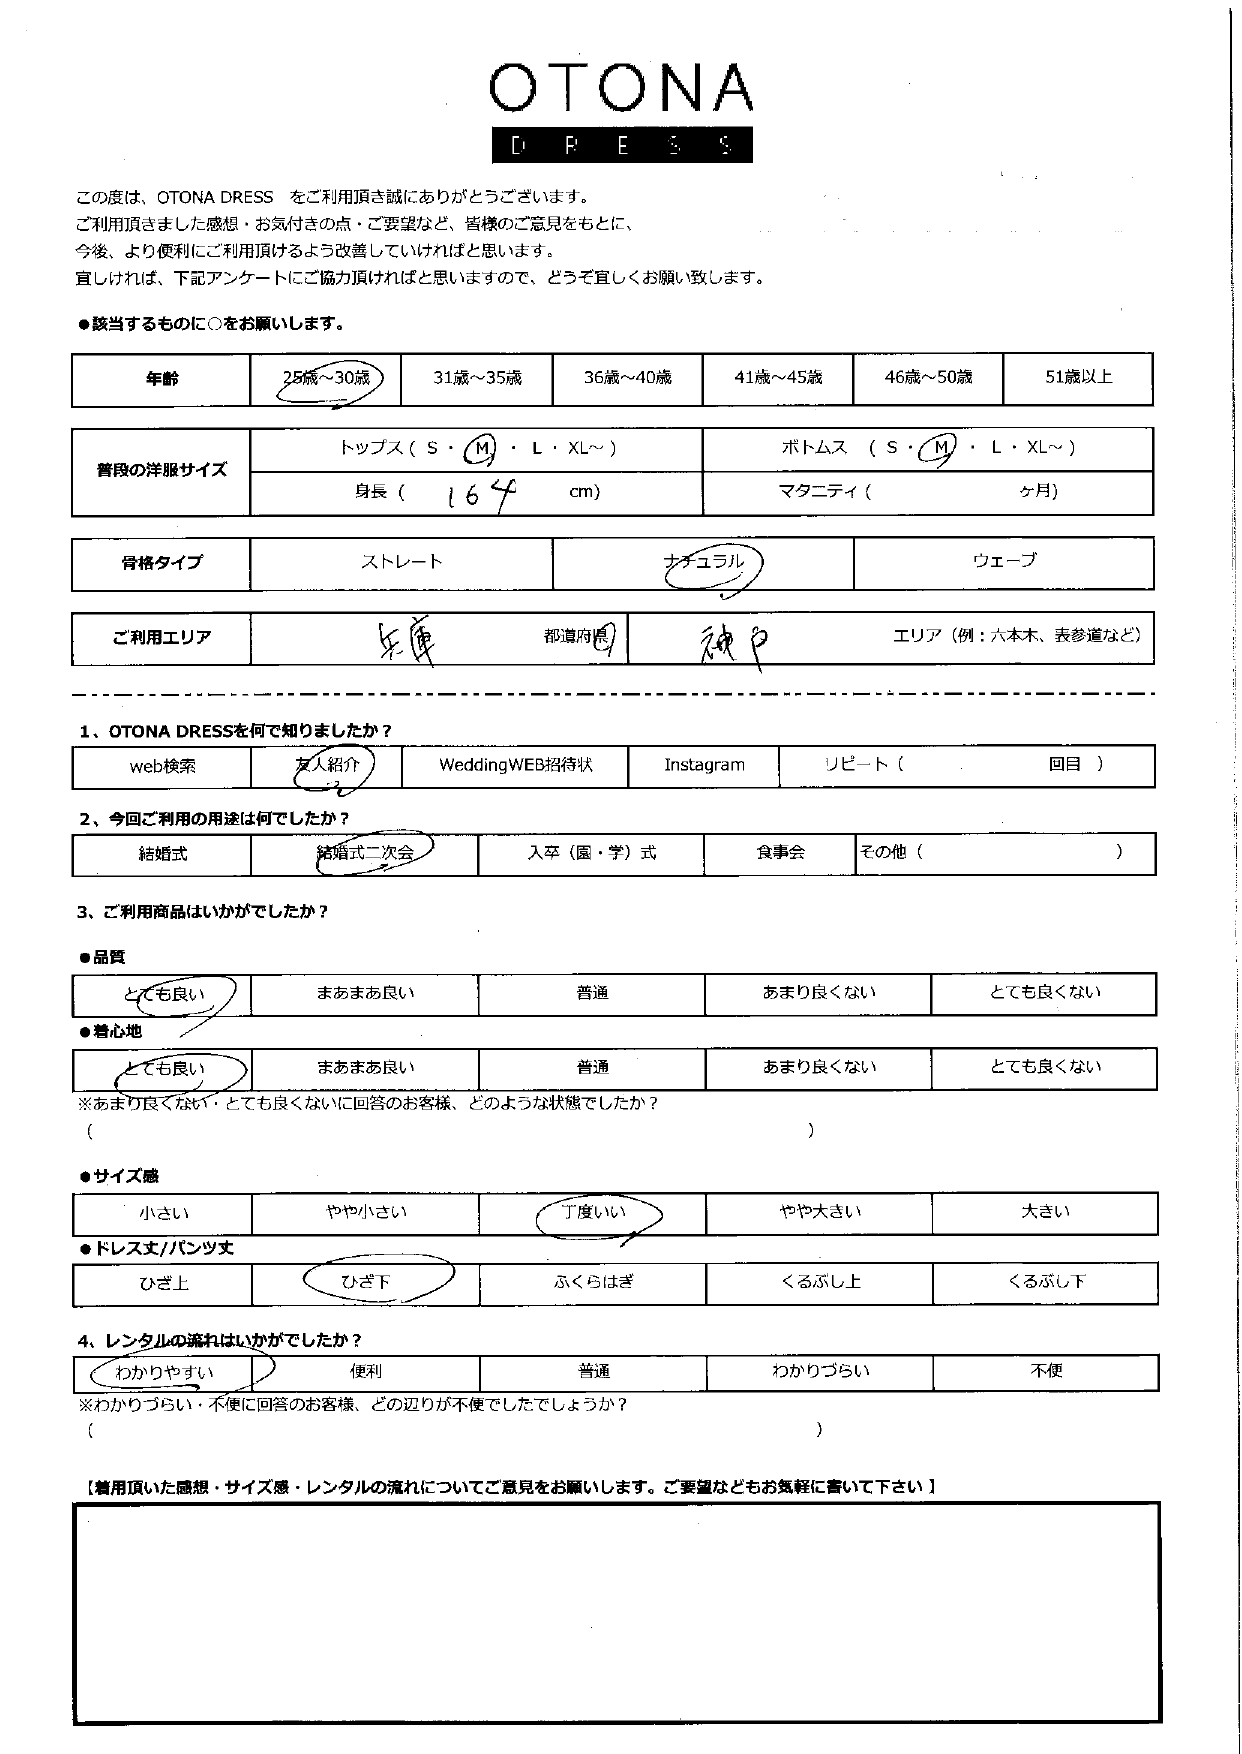 OTONA
DRESS
この度は、OTONA DRESS　をご利用頂き誠にありがとうございます。
ご利用頂きました感想・お気付きの点・ご要望など、皆様のご意見をもとに、
今後、より便利にご利用頂けるよう改善していければと思います。
宜しければ、下記アンケートにご協力頂ければと思いますので、どうぞ宜しくお願い致します。
●該当するものに○をお願いします。
年齢 25歳～30歳 31歳～35歳 36歳～40歳 41歳～45歳 46歳～50歳 51歳以上
普段の洋服サイズ トップス ( S ・ M ・ L ・ XL～ ) ボトムス ( S ・ M ・ L ・ XL～ )
身長 ( 164 cm) マタニティ ( ヶ月)
骨格タイプ ストレート ナチュラル ウェーブ
ご利用エリア 兵庫 都道府県 神戸 エリア（例：六本木、表参道など）
1、OTONA DRESSを何で知りましたか？
web検索 友人紹介 WeddingWEB招待状 Instagram リピート（ 回目 ）
2、今回ご利用の用途は何でしたか？
結婚式 結婚式二次会 入卒（園・学）式 食事会 その他（ ）
3、ご利用商品はいかがでしたか？
●品質
とても良い まあまあ良い 普通 あまり良くない とても良くない
●着心地
とても良い まあまあ良い 普通 あまり良くない とても良くない
※あまり良くない・とても良くないに回答のお客様、どのような状態でしたか？
( )
●サイズ感
小さい やや小さい 丁度いい やや大きい 大きい
●ドレス丈/パンツ丈
ひざ上 ひざ下 ふくらはぎ くるぶし上 くるぶし下
4、レンタルの流れはいかがでしたか？
わかりやすい 便利 普通 わかりづらい 不便
※わかりづらい・不便に回答のお客様、どの辺りが不便でしたでしょうか？
( )
【着用頂いた感想・サイズ感・レンタルの流れについてご意見をお願いします。ご要望などもお気軽に書いて下さい】